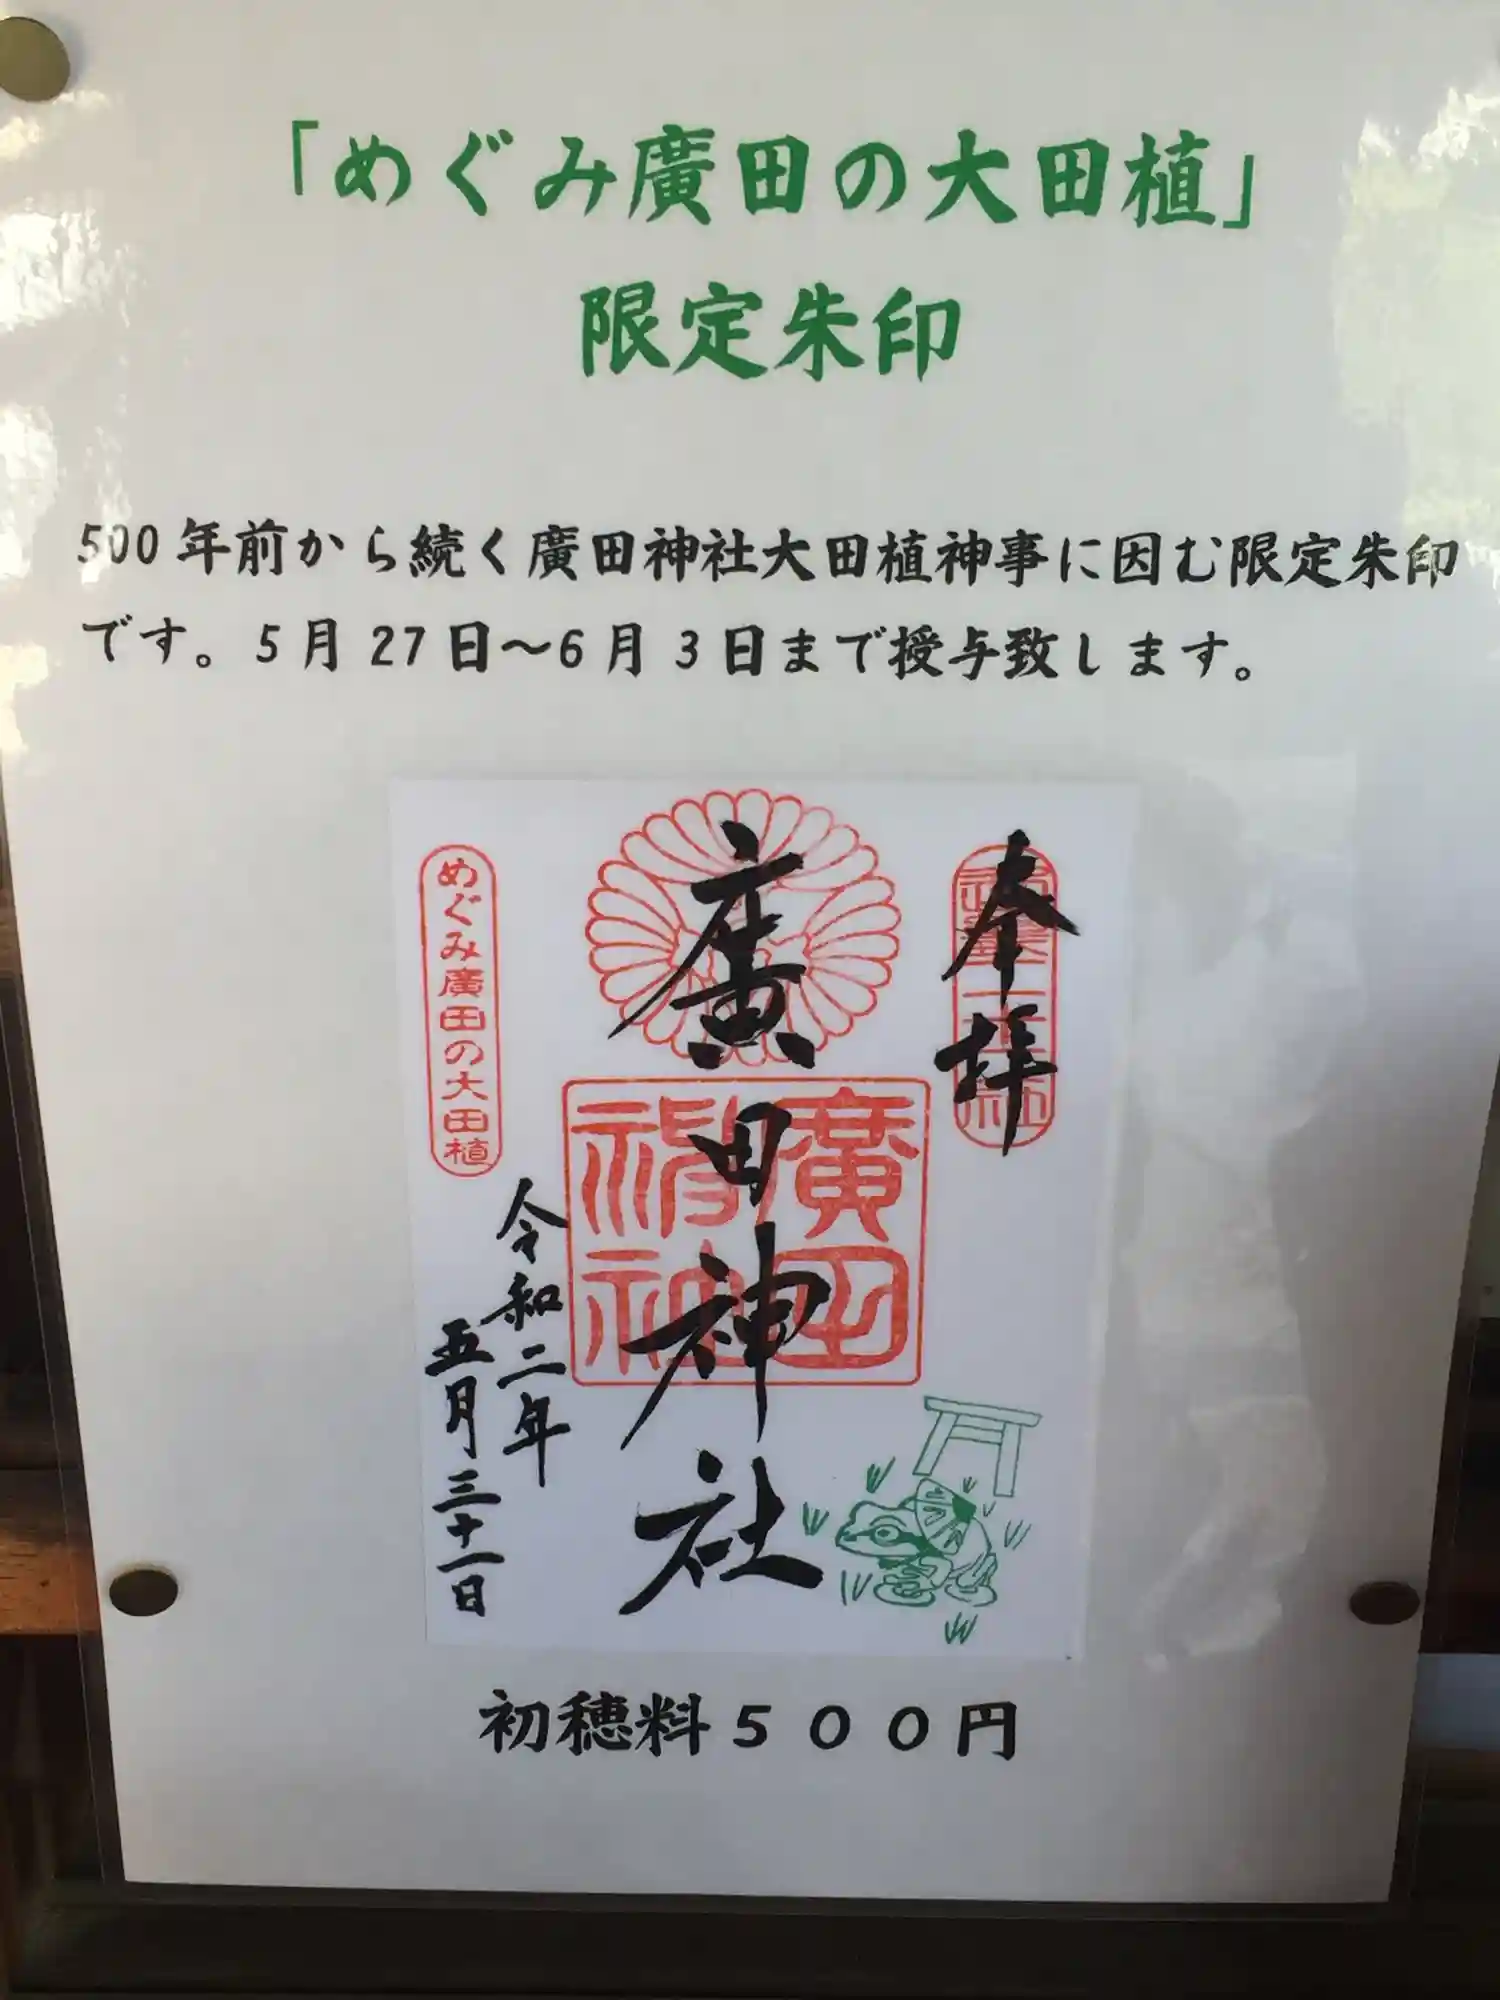 「めぐみ廣田の大田植」
限定朱印
500年前から続く廣田神社大田植神事に因む限定朱印
です。5月27日～6月3日まで授与致します。
奉拝
廣田神社
廣田
神社
令和二年
五月三十一日
めぐみ廣田の大田植
初穂料５００円